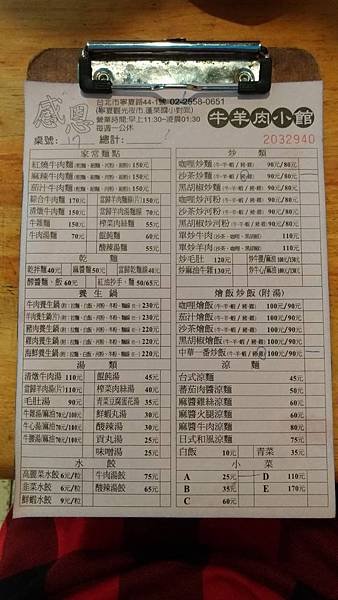 感恩
台北市寧夏路44-1號 02-2558-0651
(寧夏觀光夜市,蓬萊國小對面)
營業時間:早上11:30~凌晨01:30
每週一公休
牛羊肉小館
桌號: 17 總計:
2032940
家常麵點
紅燒牛肉麵 150元
麻辣牛肉麵 150元
茄汁牛肉麵 150元
綜合牛肉麵 170元
清燉牛肉麵 150元
牛雜麵 150元
牛肉湯麵 70元
當歸羊肉麵線(片) 150元
當歸羊肉湯麵線 70元
榨菜肉絲麵 55元
餛飩麵 55元
酸辣湯麵 55元
乾麵
乾拌麵 40元
麻醬麵 50元
當歸乾麵線 40元
酢醬麵、飯 60元
紅油抄手、麵 50/65元
養生鍋
牛肉養生鍋 230元
羊肉養生鍋(片) 230元
豬肉養生鍋 220元
雞肉養生鍋 220元
海鮮養生鍋 220元
湯類
清燉牛肉湯 110元
當歸羊肉湯(片) 110元
毛肚湯 90元
牛雜湯/麻油 70元/100元
牛心湯/麻油 70元/100元
牛腰湯/麻油 70元/100元
餛飩湯 45元
榨菜肉絲湯 40元
青菜豆腐蛋花湯 35元
鮮蝦丸湯 30元
酸辣湯 30元
貢丸湯 25元
味噌湯 25元
水餃
高麗菜水餃 6元/粒
韭菜水餃 6元/粒
鮮蝦水餃 9元/粒
牛肉湯餃 75元
酸辣湯餃 65元
炒類
咖哩炒麵(牛‧羊‧蝦/豬‧雞) 90元/80元
沙茶炒麵(牛‧羊‧蝦/豬‧雞) 90元/80元
黑胡椒炒麵(牛‧羊‧蝦/豬‧雞) 90元/80元
咖哩炒河粉(牛‧羊‧蝦/豬‧雞) 90元/80元
沙茶炒河粉(牛‧羊‧蝦/豬‧雞) 90元/80元
黑胡椒炒河粉(牛‧羊‧蝦/豬‧雞) 90元/80元
單炒牛肉(沙茶、咖哩、黑胡椒) 110元
單炒羊肉(沙茶、咖哩、黑胡椒) 110元
炒毛肚 120元
炒麻油牛雜 130元
燴飯炒飯(附湯)
咖哩燴飯(牛‧羊‧蝦/豬‧雞) 100元/90元
茄汁燴飯(牛‧羊‧蝦/豬‧雞) 100元/90元
沙茶燴飯(牛‧羊‧蝦/豬‧雞) 100元/90元
黑胡椒燴飯(牛‧羊‧蝦/豬‧雞) 100元/90元
中華一番炒飯(牛‧羊‧蝦/豬‧雞) 100元/90元
涼麵
台式涼麵 45元
蕃茄肉醬涼麵 50元
麻醬雞絲涼麵 50元
麻醬火腿涼麵 50元
麻醬牛肉涼麵 80元
日式和風涼麵 75元
白飯 10元
青菜 35元
小菜
A 25元
B 35元
C 60元
D 110元
E 170元